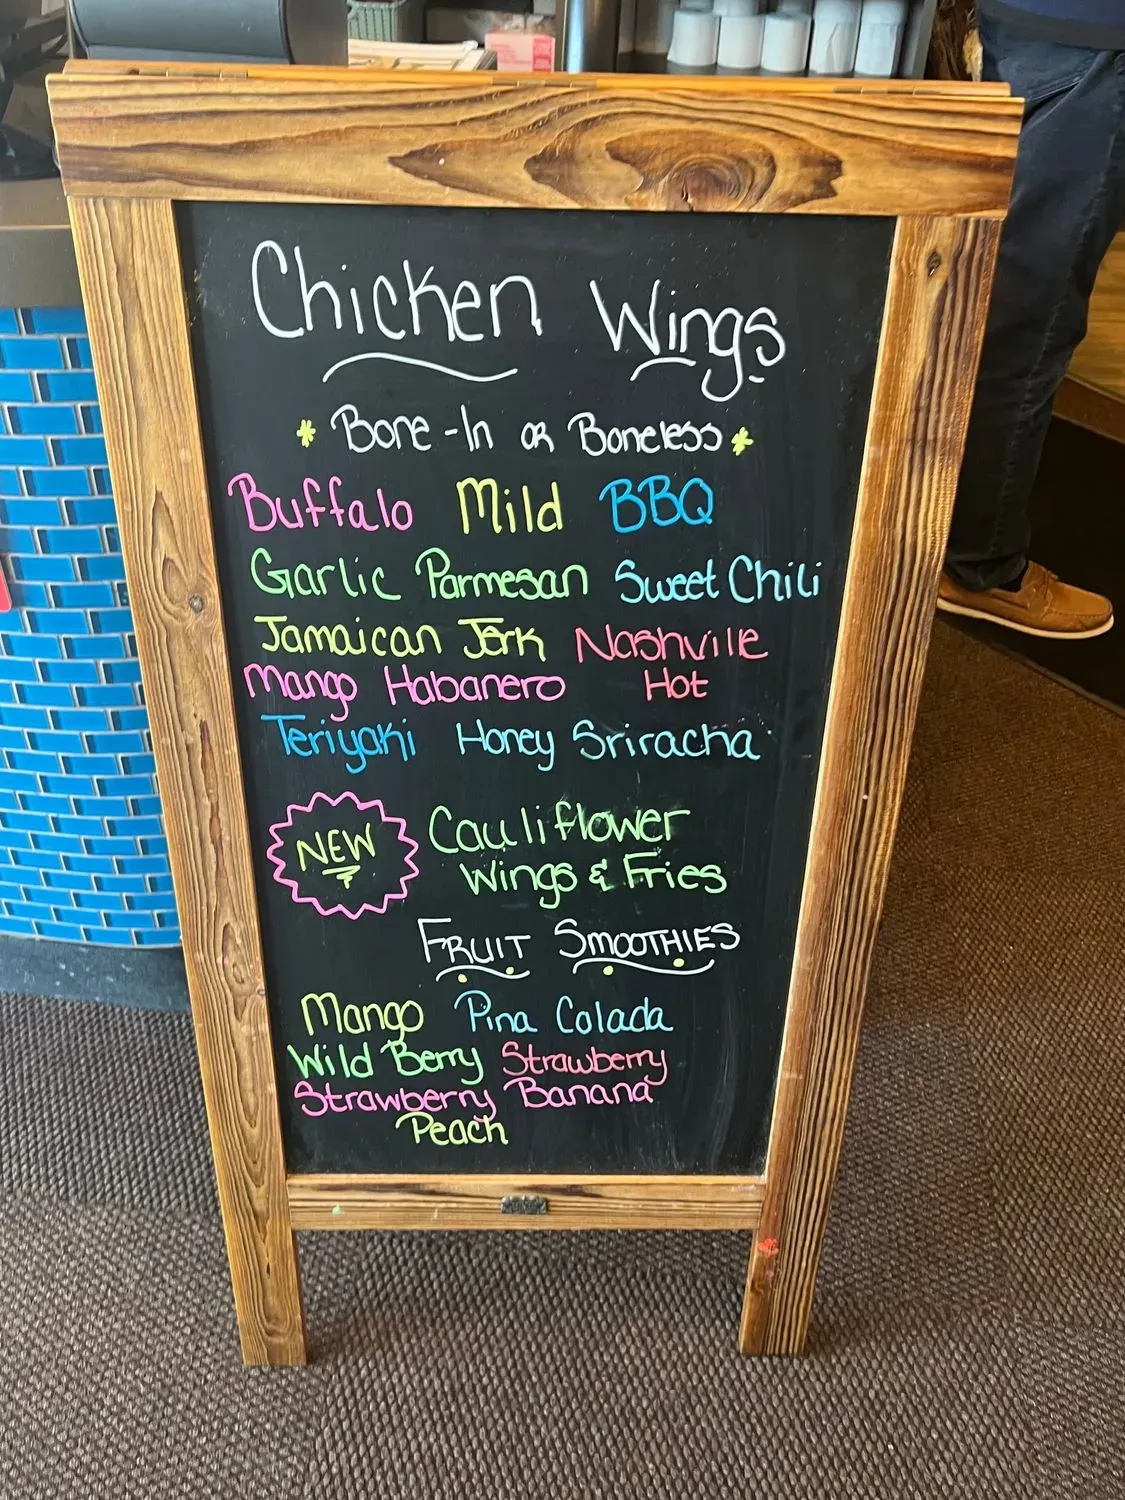 Chicken Wings
* Bone-In or Boneless *
Buffalo Mild BBQ
Garlic Parmesan Sweet Chili
Jamaican Jerk Nashville Hot
Mango Habanero
Teriyaki Honey Sriracha
NEW
Cauliflower
Wings & Fries
FRUIT SMOOTHIES
Mango Pina Colada
Wild Berry Strawberry
Strawberry Banana
Peach